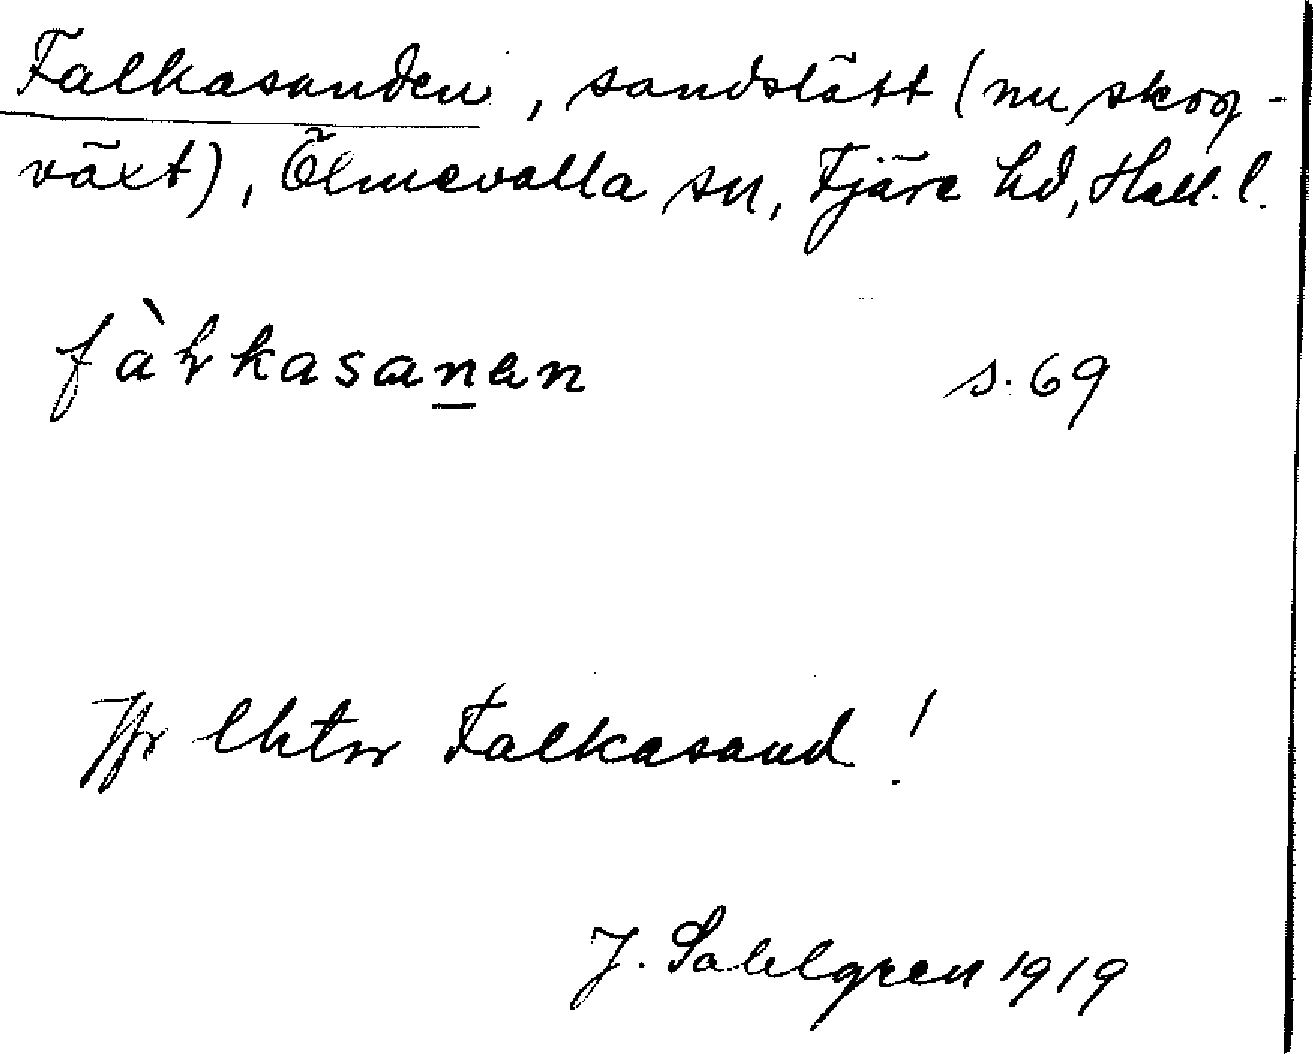 Falkasanden, sandslätt (nu skog-
växt), Ölmevalla sn, Fjäre hd, Hall. l.
fàƚkasanen s. 69
Jfr Falkasand!
J. Sahlgren 1919